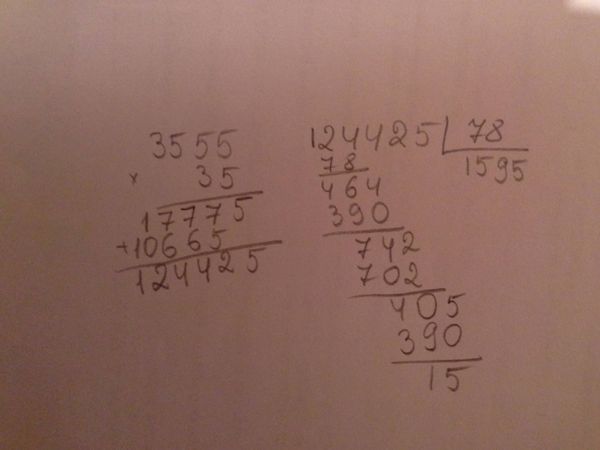 3555
× 35
17775
+10665
124425
124425 | 78
78 1595
464
390
742
702
405
390
15